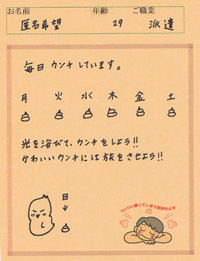 お名前 年齢 ご職業
匿名希望 29 派遣
毎日ウンチしています。
月 火 水 木 金 土
光を浴びて、ウンチをしよう!!
かわいいウンチには旅をさせよう!!
日